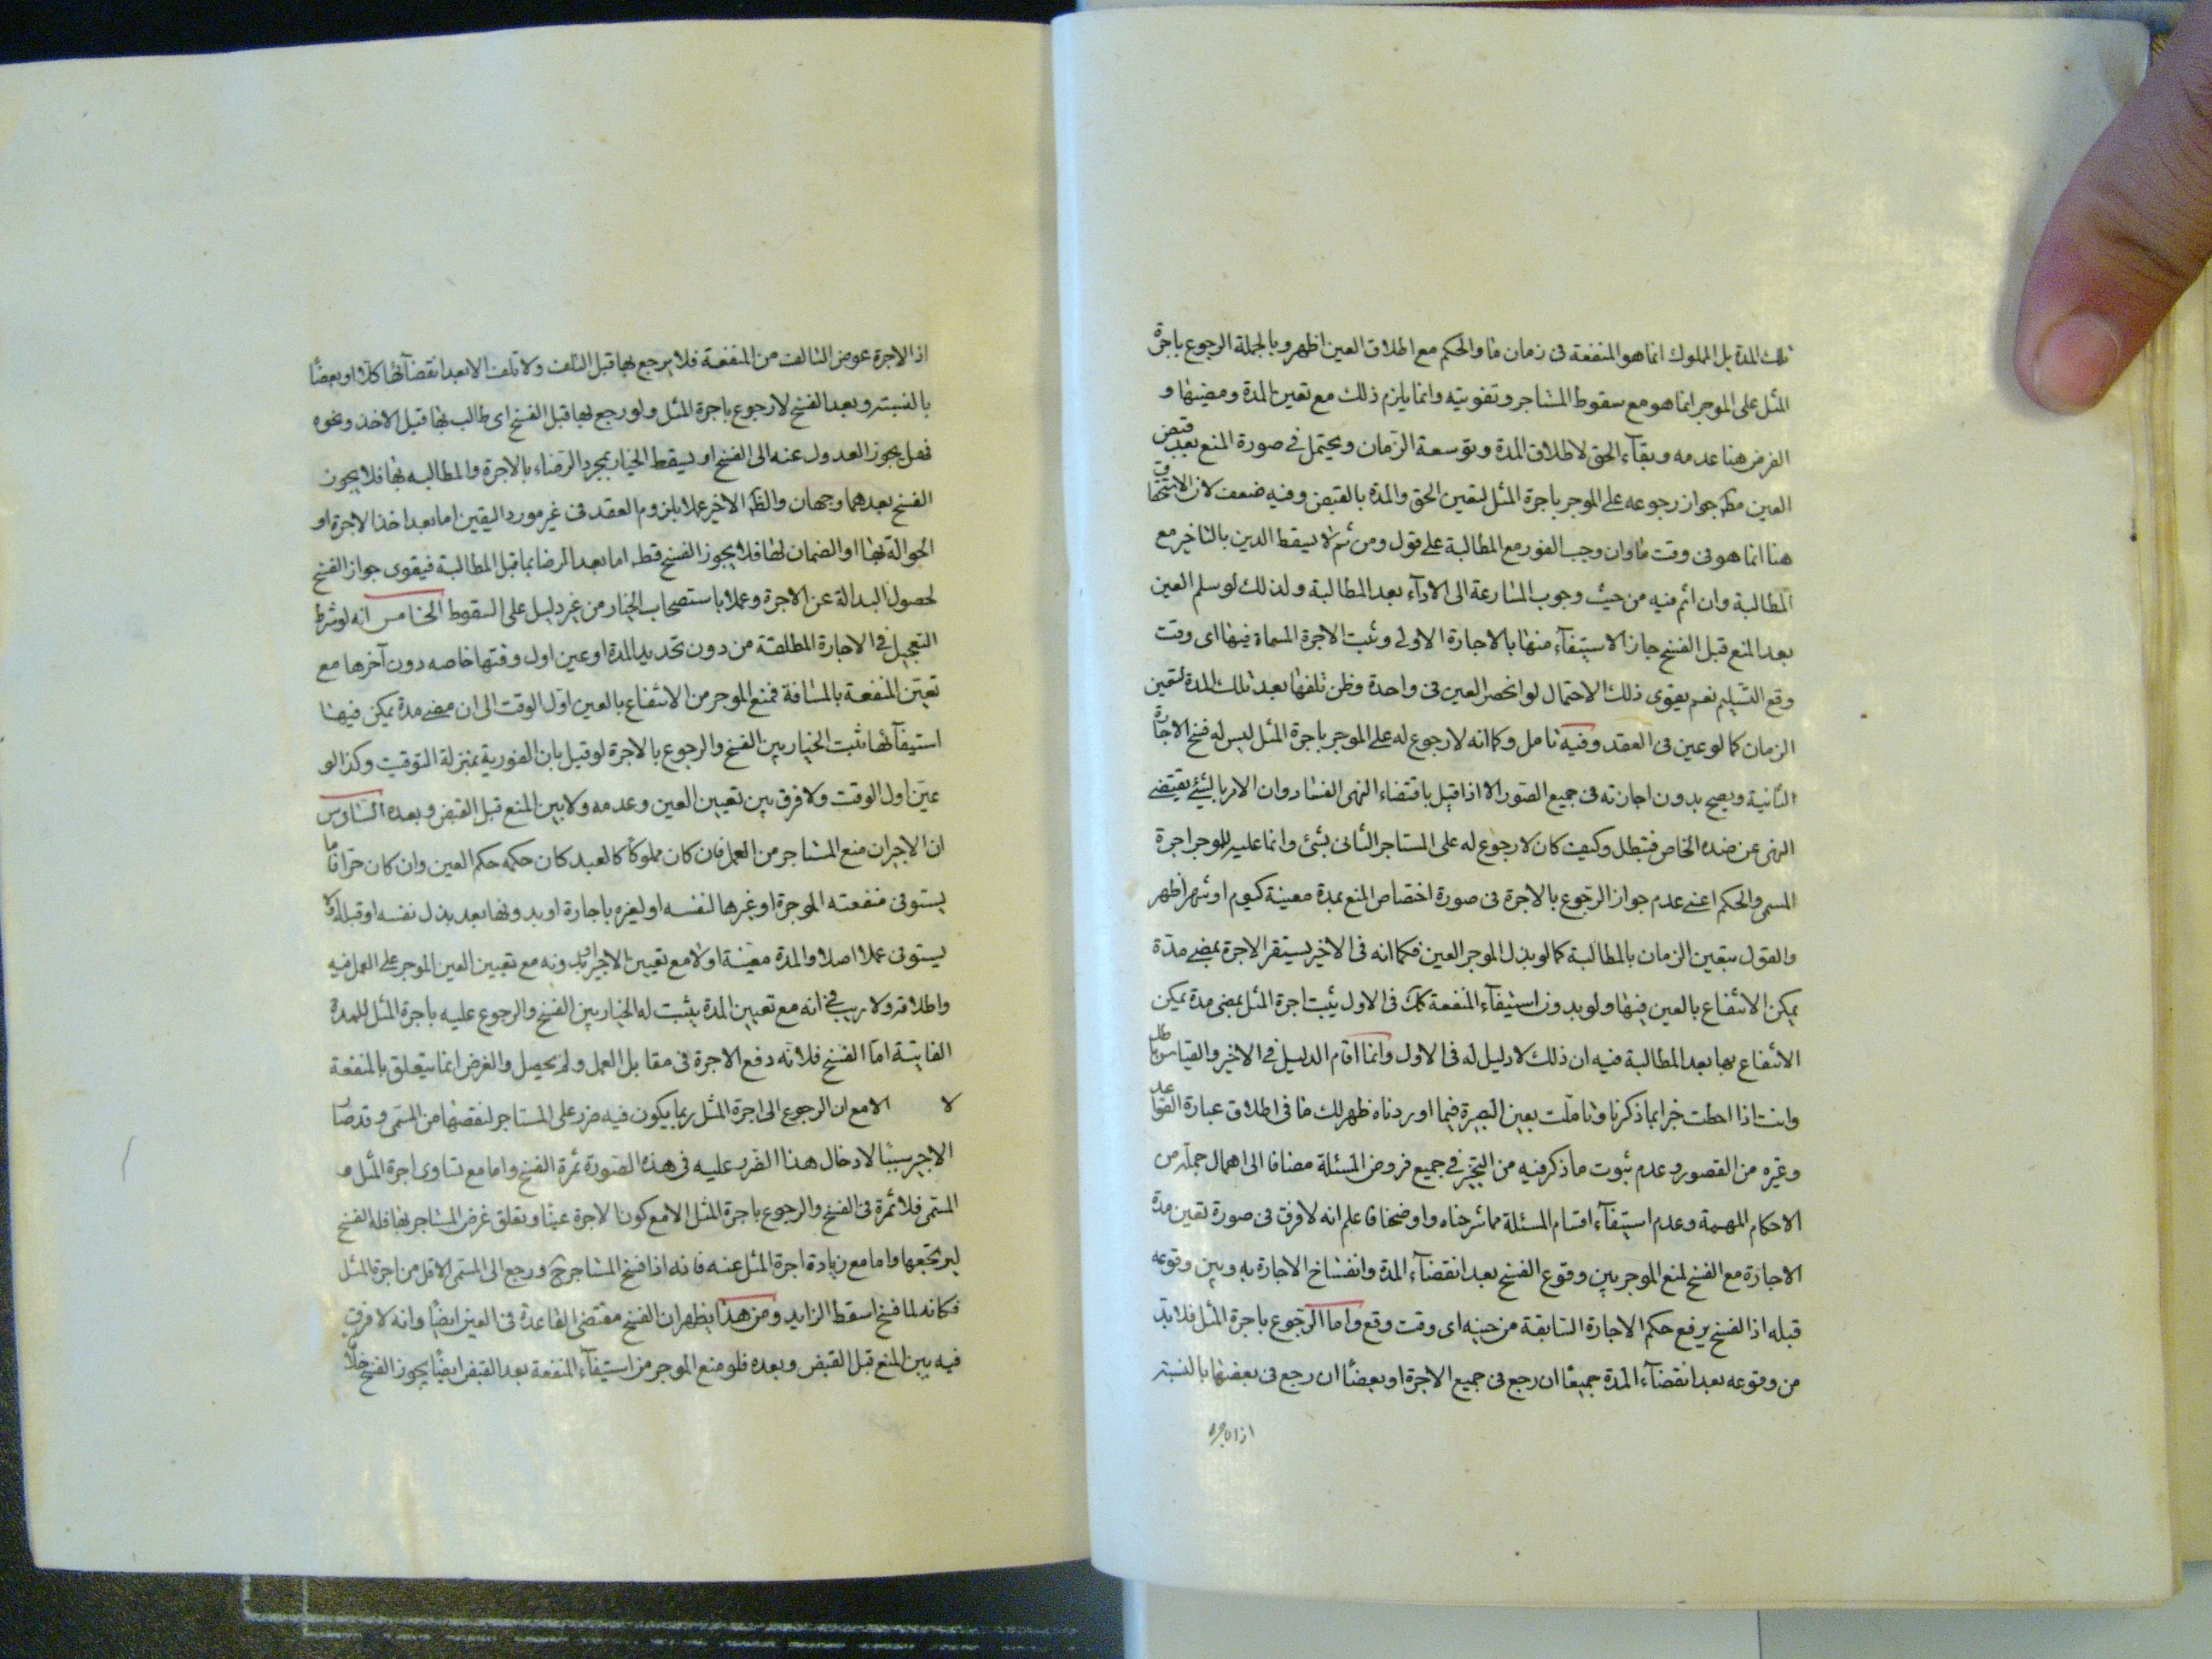 تلك المدة بل المملوك انما هو المنفعة فى زمان ما والحكم مع اطلاق العين اظهر وبالجملة الرجوع باجرة
المثل على الموجر انما هو مع سقوط المستاجر وتفويته وانما يلزم ذلك مع تعين المدة ومضيها و
الفرض هنا عدمه وبقآء الحق لاطلاق المدة وتوسعة الزمان ويحتمل فى صورة المنع بعد قبض
العين مط جواز رجوعه على الموجر باجرة المثل لتعين الحق والمدة بالقبض وفيه ضعف لان الاستحقاق
هنا انما هو فى وقت ما وان وجب الفور مع المطالبة على قول ومن ثم لا يسقط الدين بالتاخير مع
المطالبة وان اثم فيه من حيث وجوب المسارعة الى الادآء بعد المطالبة ولذلك لو سلم العين
بعد المنع قبل الفسخ جاز الاستيفآء منها بالاجارة الاولى وثبت الاجرة المسماة فيها اى وقت
وقع التسليم نعم يقوى ذلك الاحتمال لو انحصر العين فى واحدة وظن تلفها بعد تلك المدة لتعين
الزمان كما لو عين فى العقد وفيه تامل وكما انه لا رجوع له على الموجر باجرة المثل ليس له فسخ الاجارة
الثانية ويصح بدون اجازته فى جميع الصور الا اذا قيل باقتضاء النهى الفساد وان الامر بالشيئ يقتضى
النهى عن ضده الخاص فتبطل وكيف كان لا رجوع له على المستاجر الثانى بشئ وانما عليه للموجر اجرة
المسمى والحكم اعنى عدم جواز الرجوع بالاجرة فى صورة اختصاص المنع بمدة معينة كيوم او شهر اظهر
والقول بتعين الزمان بالمطالبة كما لو بذل الموجر العين فكما انه فى الاخير يستقر الاجرة بمضى مدة
يمكن الانتفاع بالعين فيها ولو بدون استيفآء المنفعة كك فى الاول يثبت اجرة المثل بمضى مدة يمكن
الانتفاع بها بعد المطالبة فيه ان ذلك لا دليل له فى الاول وانما اقام الدليل فى الاخير والقياس باطل
وانت اذا احطت خبرا بما ذكرنا وتاملت بعين البصيرة فيما اوردناه ظهر لك ما فى اطلاق عبارة القواعد
وغيره من القصور وعدم ثبوت ما ذكر فيه من التخيير فى جميع فروض المسئلة مضافا الى اهمال جملة من
الاحكام المهمة وعدم استيفآء اقسام المسئلة مما شرحناه واوضحنا فاعلم انه لا فرق فى صورة تعين مدة
الاجارة مع الفسخ لمنع الموجر بين وقوع الفسخ بعد انقضآء المدة وانفساخ الاجارة به وبين وقوعه
قبله اذ الفسخ يرفع حكم الاجارة السابقة من حينه اى وقت وقع واما الرجوع باجرة المثل فلابد
من وقوعه بعد انقضآء المدة جميعا ان رجع فى جميع الاجرة او بعضا ان رجع فى بعضها بالنسبة
اذ الاجرة
اذ الاجرة عوض التالف من المنفعة فلا يرجع بها قبل التلف ولا تلف الا بعد انقضآئها كلا او بعضا
بالنسبة وبعد الفسخ لا رجوع باجرة المثل ولو رجع بها قبل الفسخ اى طالب بها قبل الاخذ ونحوه
فهل يجوز العدول عنه الى الفسخ او يسقط الخيار بمجرد الرضاء بالاجرة والمطالبه بها فلا يجوز
الفسخ بعدهما وجهان والظ الاخير عملا بلزوم العقد فى غير مورد اليقين اما بعد اخذ الاجرة او
الحوالة بها او الضمان لها فلا يجوز الفسخ قط اما بعد الرضا بما قبل المطالبة فيقوى جواز الفسخ
لحصول البدالة عن الاجرة وعملا باستصحاب الخيار من غير دليل على السقوط الخامس انه لو شرط
التعجيل فى الاجارة المطلقة من دون تحديد المدة او عين اول وقتها خاصه دون آخرها مع
تعين المنفعة بالمسافة فمنع الموجر من الانتفاع بالعين اول الوقت الى ان مضى مدة يمكن فيها
استيفآئها ثبت الخيار بين الفسخ والرجوع بالاجرة لو قيل بان الفورية بمنزلة التوقيت وكذا لو
عين اول الوقت ولا فرق بين تعيين العين وعدمه ولا بين المنع قبل القبض وبعده السادس
ان الاجير ان منع المستاجر من العمل فان كان مملوكا كالعبد كان حكمه حكم العين وان كان حرا فاما
يستوفى منفعته الموجرة او غيرها لنفسه او لغيره باجارة او بدونها بعد بذل نفسه او قبله او لا
يستوفى عملا اصلا والمدة معينة اولا مع تعيين الاجير او بدونه مع تعيين العين الموجر على العمل فيه
واطلاقه ولا ريب فى انه مع تعيين المدة يثبت له الخيار بين الفسخ والرجوع عليه باجرة المثل للمدة
الفايتة اما الفسخ فلانه دفع الاجرة فى مقابل العمل ولم يحصل والغرض انما يتعلق بالمنفعة
لا الا مع ان الرجوع الى اجرة المثل ربما يكون فيه ضرر على المستاجر لنقصها من المسمى وقد صار
الاجير سببا لادخال هذا الضرر عليه فى هذه الصورة ثمرة الفسخ واما مع تساوى اجرة المثل مـ
المسمى فلا ثمرة فى الفسخ والرجوع باجرة المثل الا مع كون الاجرة عينا وتعلق غرض المستاجر بها فله الفسخ
ليرتجعها واما مع زيادة اجرة المثل عنه فانه اذا فسخ المستاجر ح ورجع الى المسمى الاقل من اجرة المثل
فكانه لما فسخ اسقط الزايد ومن هذا يظهر ان الفسخ مقتضى القاعدة فى العين ايضا وانه لا فرق
فيه بين المنع قبل القبض وبعده فلو منع الموجر من استيفآء المنفعة بعد القبض ايضا يجوز الفسخ خلافا